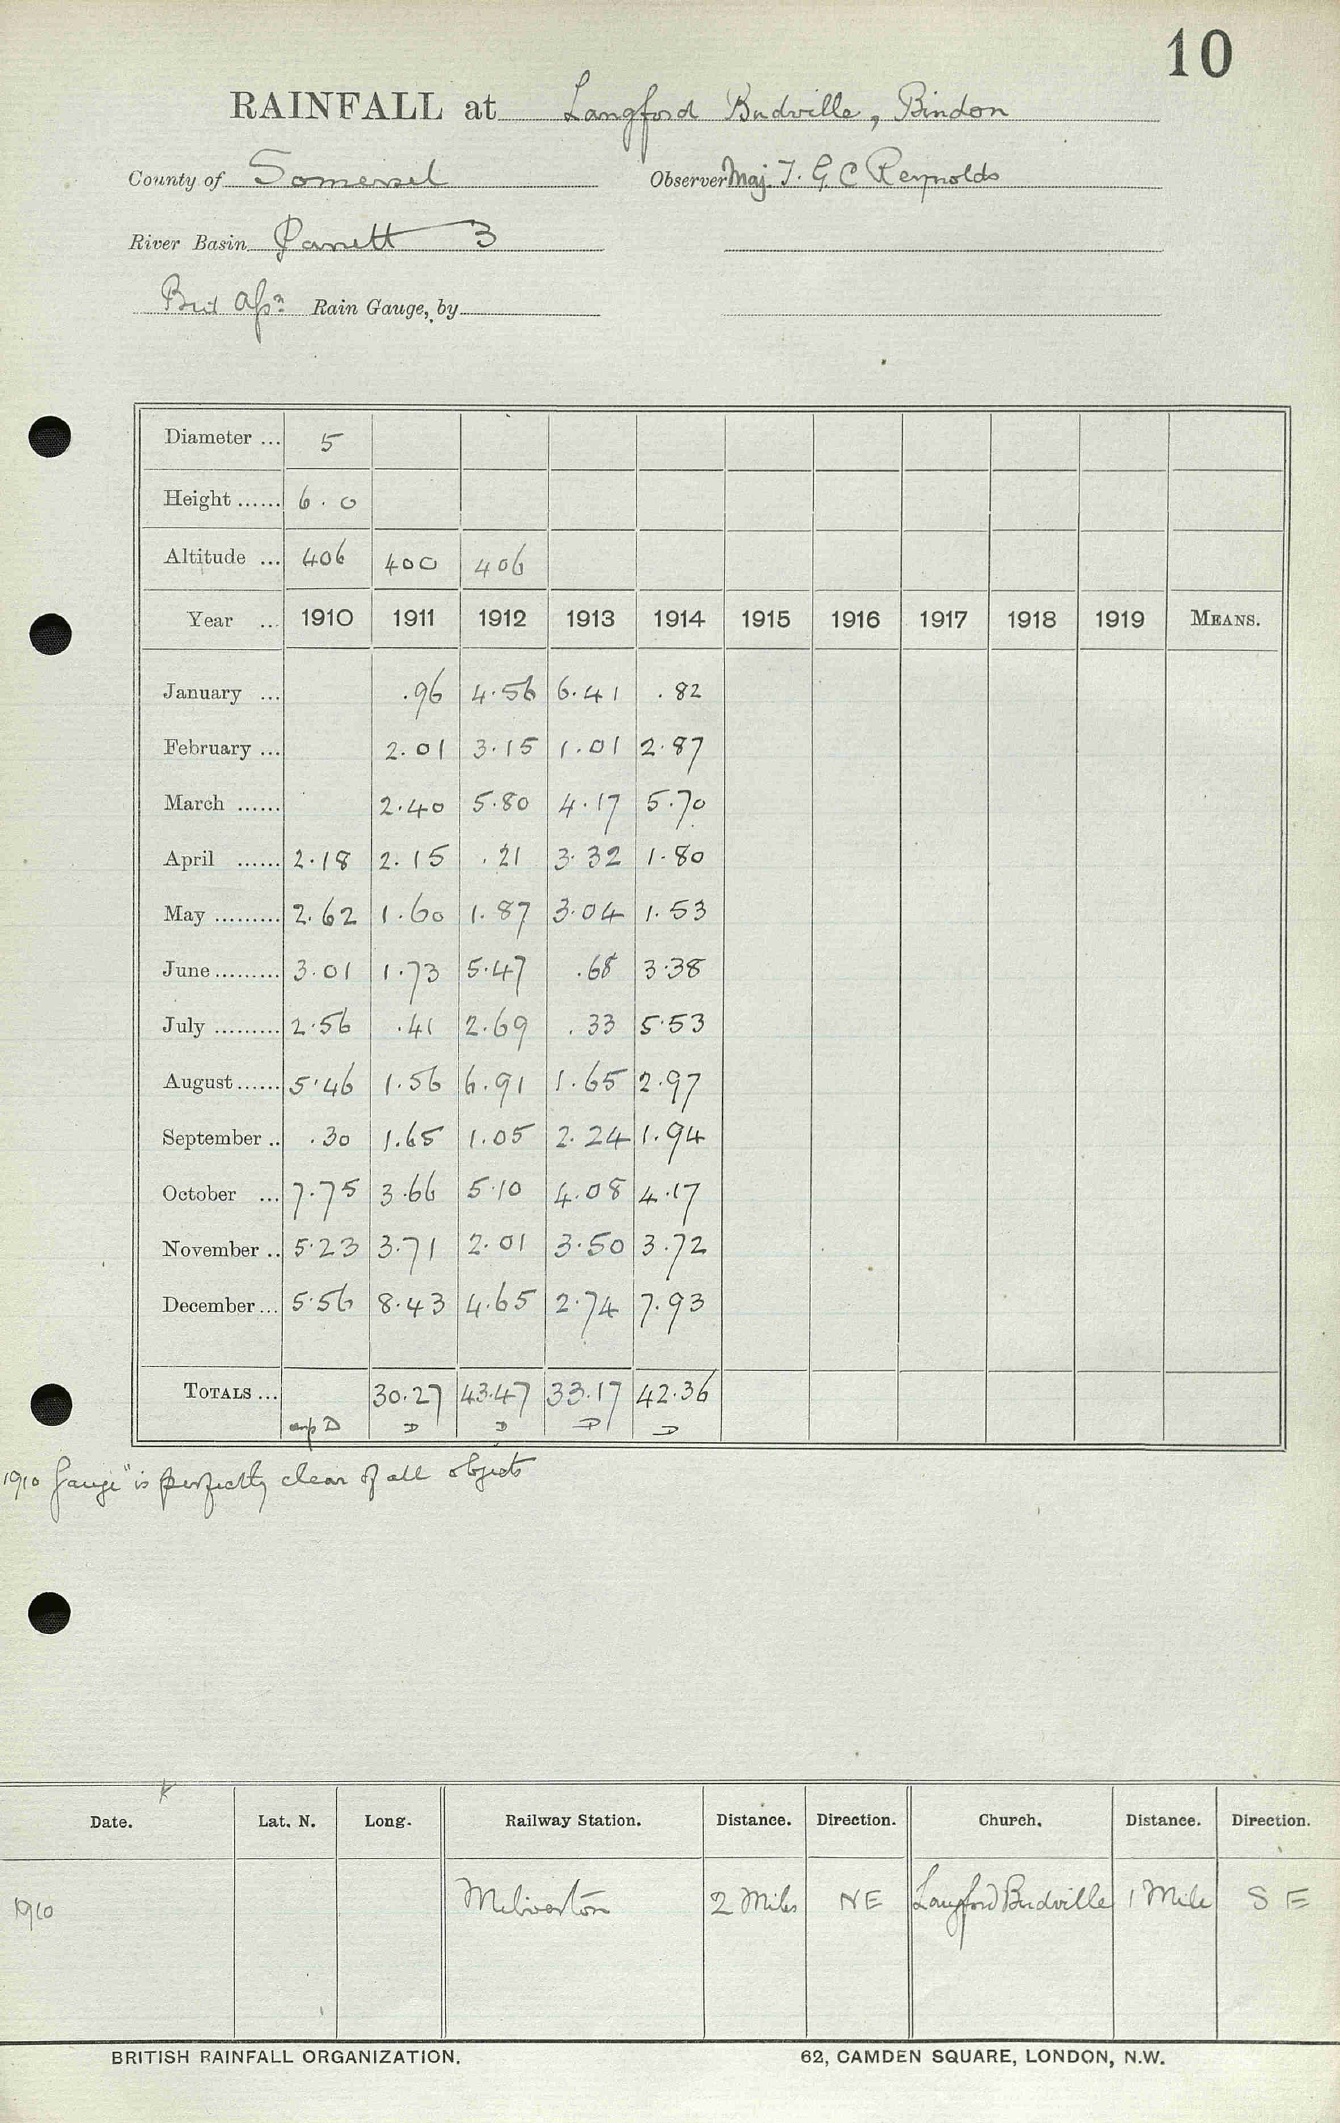 10
RAINFALL at Langford Budville, Bindon
County of Somerset Observer Maj. T. G C Reynolds
River Basin Parrett 3
Brit Assn Rain Gauge, by
Diameter ... 5
Height ...... 6. 0
Altitude ... 406 400 406
Year ... 1910 1911 1912 1913 1914 1915 1916 1917 1918 1919 MEANS.
January ... .96 4.56 6.41 .82
February ... 2.01 3.15 1.01 2.87
March ...... 2.40 5.80 4.17 5.70
April ...... 2.18 2.15 .21 3.32 1.80
May ......... 2.62 1.60 1.87 3.04 1.53
June ......... 3.01 1.73 5.47 .68 3.38
July ......... 2.56 .41 2.69 .33 5.53
August ...... 5.46 1.56 6.91 1.65 2.97
September .. .30 1.65 1.05 2.24 1.94
October ... 7.75 3.66 5.10 4.08 4.17
November .. 5.23 3.71 2.01 3.50 3.72
December ... 5.56 8.43 4.65 2.74 7.93
TOTALS ... 30.27 43.47 33.17 42.36
D D D D D
1910 Gauge "is perfectly clear of all objects
K
Date. Lat. N. Long. Railway Station. Distance. Direction. Church. Distance. Direction.
1910 Milverton 2 Miles NE Langford Budville 1 Mile S E
BRITISH RAINFALL ORGANIZATION. 62, CAMDEN SQUARE, LONDON, N.W.